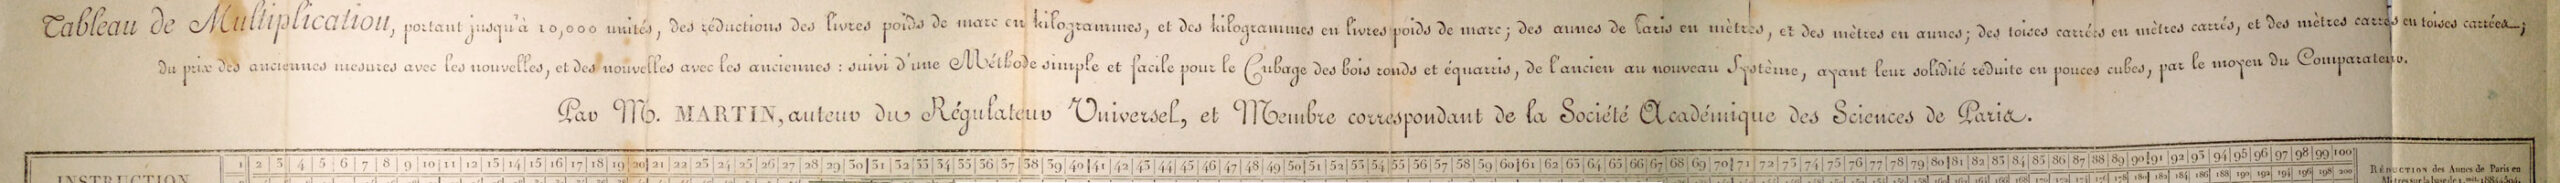 Tableau de Multiplication, portant jusqu'à 10,000 unités, des réductions des livres poids de marc en kilogrammes, et des kilogrammes en livres poids de marc; des aunes de Paris en mètres, et des mètres en aunes; des toises carrées en mètres carrés, et des mètres carrés en toises carrées;
du prix des anciennes mesures avec les nouvelles, et des nouvelles avec les anciennes: suivi d'une Méthode simple et facile pour le Cubage des bois ronds et équarris, de l'ancien au nouveau Système, ayant leur solidité réduite en pouces cubes, par le moyen du Comparateur.
Par M. MARTIN, auteur du Régulateur Universel, et Membre correspondant de la Société Académique des Sciences de Paris.
INSTRUCTION
1 2 3 4 5 6 7 8 9 10 11 12 13 14 15 16 17 18 19 20 21 22 23 24 25 26 27 28 29 30 31 32 33 34 35 36 37 38 39 40 41 42 43 44 45 46 47 48 49 50 51 52 53 54 55 56 57 58 59 60 61 62 63 64 65 66 67 68 69 70 71 72 73 74 75 76 77 78 79 80 81 82 83 84 85 86 87 88 89 90 91 92 93 94 95 96 97 98 99 100
180 182 184 186 188 190 192 194 196 198 200
RÉDUCTION des Aunes de Paris en
Mètres sur la base de 1